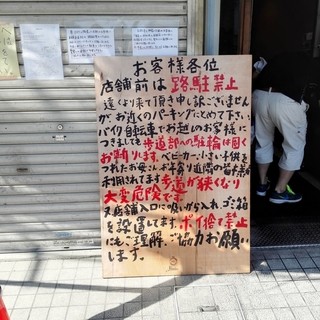 お客様各位
店舗前は路駐禁止
遠くより来て頂き申し訳ございません
がお近くのパーキングにとめて下さい
バイク自転車でお越しのお客様に
つきましても歩道部への駐輪は固く
お断りします。ベビーカー、小さい子供を
つれたお母さん、お年寄り近隣の皆様が
利用されてます歩道が狭くなり
大変危険です
又店舗入口に吸いがら入れ、ゴミ箱
を設置してます。ポイ捨て禁止
にもご理解、ご協力お願い
します。